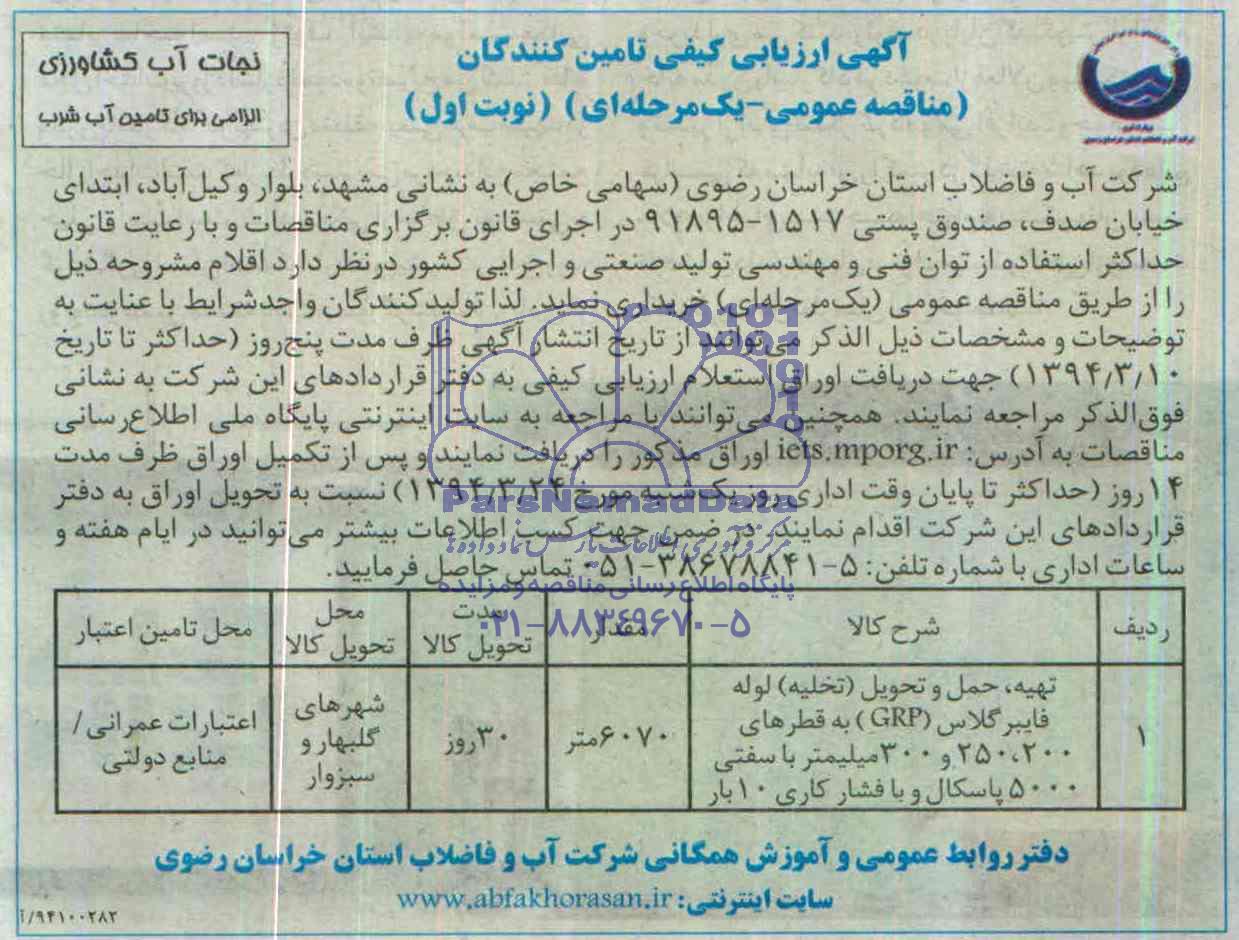 آگهی ارزیابی کیفی تامین کنندگان
(مناقصه عمومی-یک‌مرحله‌ای) (نوبت اول)
نجات آب کشاورزی
الزامی برای تامین آب شرب
شرکت آب و فاضلاب استان خراسان رضوی (سهامی خاص) به نشانی مشهد، بلوار وکیل‌آباد، ابتدای
خیابان صدف، صندوق پستی ۱۵۱۷-۹۱۸۹۵ در اجرای قانون برگزاری مناقصات و با رعایت قانون
حداکثر استفاده از توان فنی و مهندسی تولید صنعتی و اجرایی کشور درنظر دارد اقلام مشروحه ذیل
را از طریق مناقصه عمومی (یک‌مرحله‌ای) خریداری نماید. لذا تولیدکنندگان واجدشرایط با عنایت به
توضیحات و مشخصات ذیل الذکر می‌توانند از تاریخ انتشار آگهی ظرف مدت پنج‌روز (حداکثر تا تاریخ
۱۳۹۴/۳/۱۰) جهت دریافت اوراق استعلام ارزیابی کیفی به دفتر قراردادهای این شرکت به نشانی
فوق‌الذکر مراجعه نمایند. همچنین می‌توانند با مراجعه به سایت اینترنتی پایگاه ملی اطلاع‌رسانی
مناقصات به آدرس: iets.mporg.ir اوراق مذکور را دریافت نمایند و پس از تکمیل اوراق ظرف مدت
۱۴روز (حداکثر تا پایان وقت اداری روز یک‌شنبه مورخ ۱۳۹۴/۳/۲۴) نسبت به تحویل اوراق به دفتر
قراردادهای این شرکت اقدام نمایند. در ضمن جهت کسب اطلاعات بیشتر می‌توانید در ایام هفته و
ساعات اداری با شماره تلفن: ۵-۳۸۶۷۸۸۴۱-۰۵۱ تماس حاصل فرمایید.
ParsNamadData
مرکز فرآوری اطلاعات پارس نماد داده‌ها
پایگاه اطلاع رسانی مناقصه و مزایده
۰۲۱-۸۸۳۴۹۶۷۰-۵
ردیف شرح کالا مقدار مدت تحویل کالا محل تحویل کالا محل تامین اعتبار
۱
تهیه، حمل و تحویل (تخلیه) لوله
فایبرگلاس (GRP) به قطرهای
۲۰۰، ۲۵۰ و ۳۰۰میلیمتر با سفتی
۵۰۰۰پاسکال و با فشار کاری ۱۰بار
۶۰۷۰متر
۳۰روز
شهرهای
گلبهار و
سبزوار
اعتبارات عمرانی/
منابع دولتی
دفتر روابط عمومی و آموزش همگانی شرکت آب و فاضلاب استان خراسان رضوی
سایت اینترنتی: www.abfakhorasan.ir
۹۴۱۰۰۲۸۲/آ